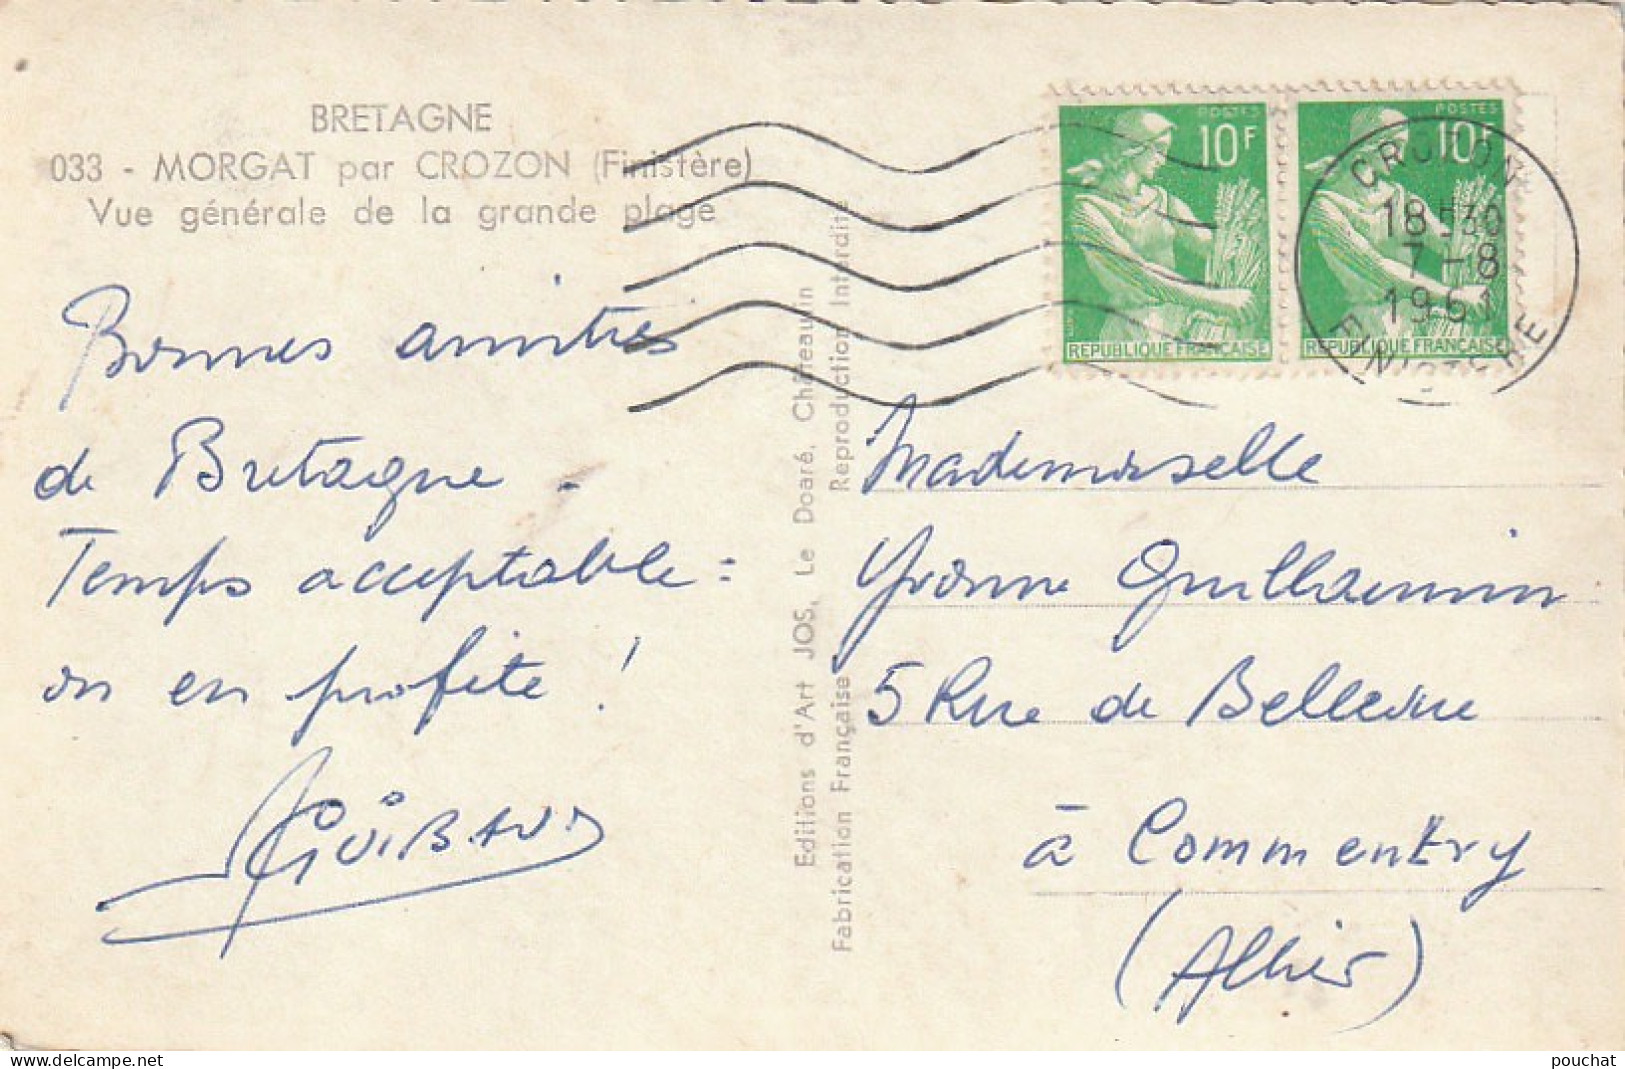 BRETAGNE
033 - MORGAT par CROZON (Finistère)
Vue générale de la grande plage
Bonnes amitiés
de Bretagne -
Temps acceptable :
on en profite !
GUIBAUD
Editions d'Art JOS, Le Doaré, Châteaulin
Fabrication Française Reproduction Interdite
POSTES
10F
REPUBLIQUE FRANÇAISE
POSTES
10F
REPUBLIQUE FRANÇAISE
CROZON
18H30
7-8
1961
FINISTERE
Mademoiselle
Yvonne Guillaumin
5 Rue de Bellevue
à Commentry
(Allier)
delcampe.net
pouchat